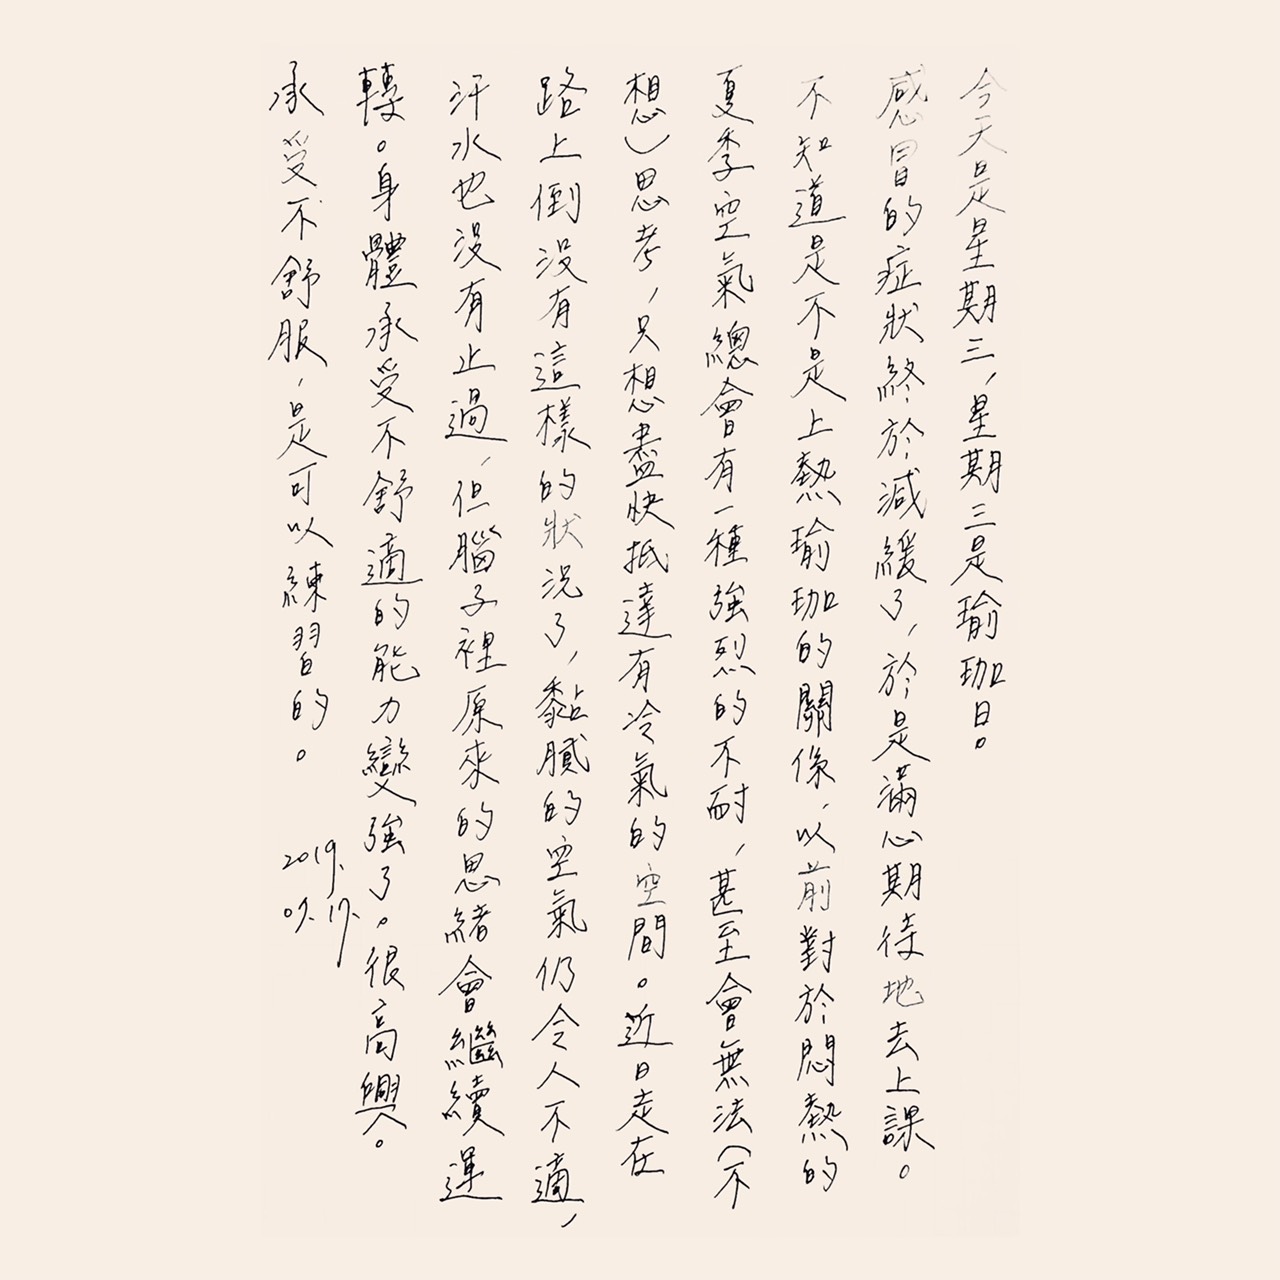 今天是星期三，星期三是瑜珈日。
感冒的症狀終於減緩了，於是滿心期待地去上課。
不知道是不是上熱瑜珈的關係，以前對於悶熱的
夏季空氣總會有一種強烈的不耐，甚至會無法(不
想)思考，只想盡快抵達有冷氣的空間。近日走在
路上倒沒有這樣的狀況了，黏膩的空氣仍令人不適，
汗水也沒有止過，但腦子裡原來的思緒會繼續運
轉。身體承受不舒適的能力變強了。很高興。
承受不舒服，是可以練習的。
2019.
07.17.